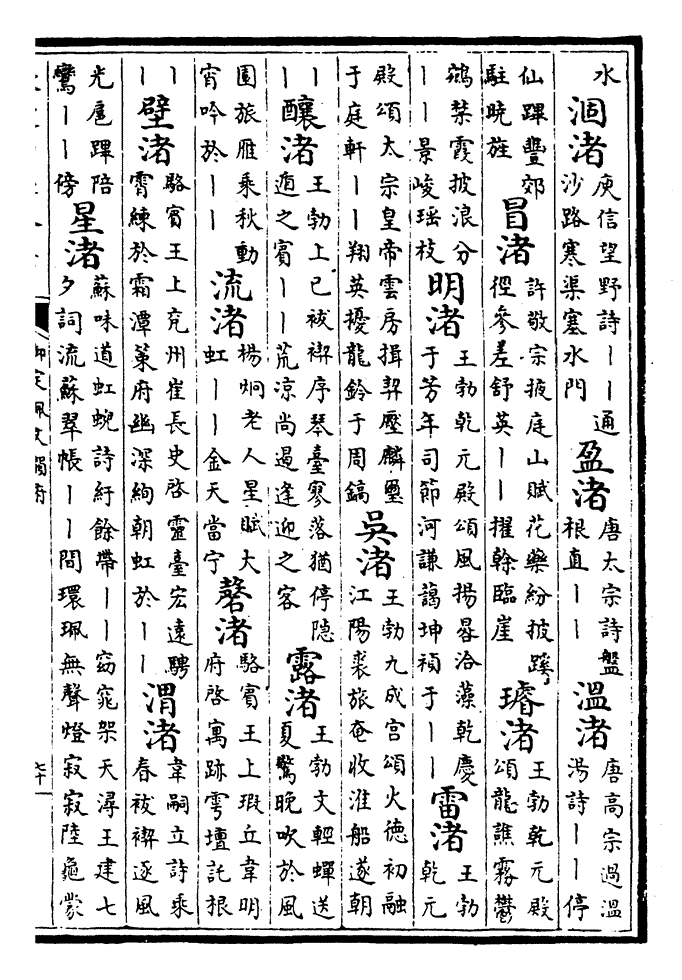 水涸渚庾信望野詩——通沙路寒渠塞水門盈渚唐太宗詩盤根直——溫渚唐高宗過溫湯詩——停
仙蹕豐郊駐曉旌冒渚許敬宗掖庭山賦花藥紛披蹊徑參差舒英——擢幹臨崖璿渚王勃乾元殿頌龍譙霧鬱
鵷禁霞披浪分——景峻瑤枝明渚王勃乾元殿頌風揚晷洽藻乾慶于芳年司節河謙藹坤禎于——雷渚王勃乾元
殿頌太宗皇帝雲房揖契壓麟璽于庭軒——翔英擾龍鈴于周鎬吳渚王勃九成宮頌火德初融江陽裘旅奄收淮船遂朝
——釀渚王勃上巳祓禊序琴臺寥落猶停隱遁之賓——荒涼尚遏逢迎之客露渚王勃文輕蟬送夏驚晚吹於風
園旅雁乘秋動宵吟於——流渚楊炯老人星賦大虹——金天當宁磬渚駱賓王上瑕丘韋明府啓寓跡雩壇託根
——壁渚駱賓王上兗州崔長史啓靈臺宏遠騁霄練於霜潭策府幽深絢朝虹於——渭渚韋嗣立詩乘春祓禊逐風
光扈蹕陪鸞——傍星渚蘇味道虹蜺詩紆餘帶——窈窕架天潯王建七夕詞流蘇翠帳——間環珮無聲燈寂寂陸龜蒙
御定佩文韻府